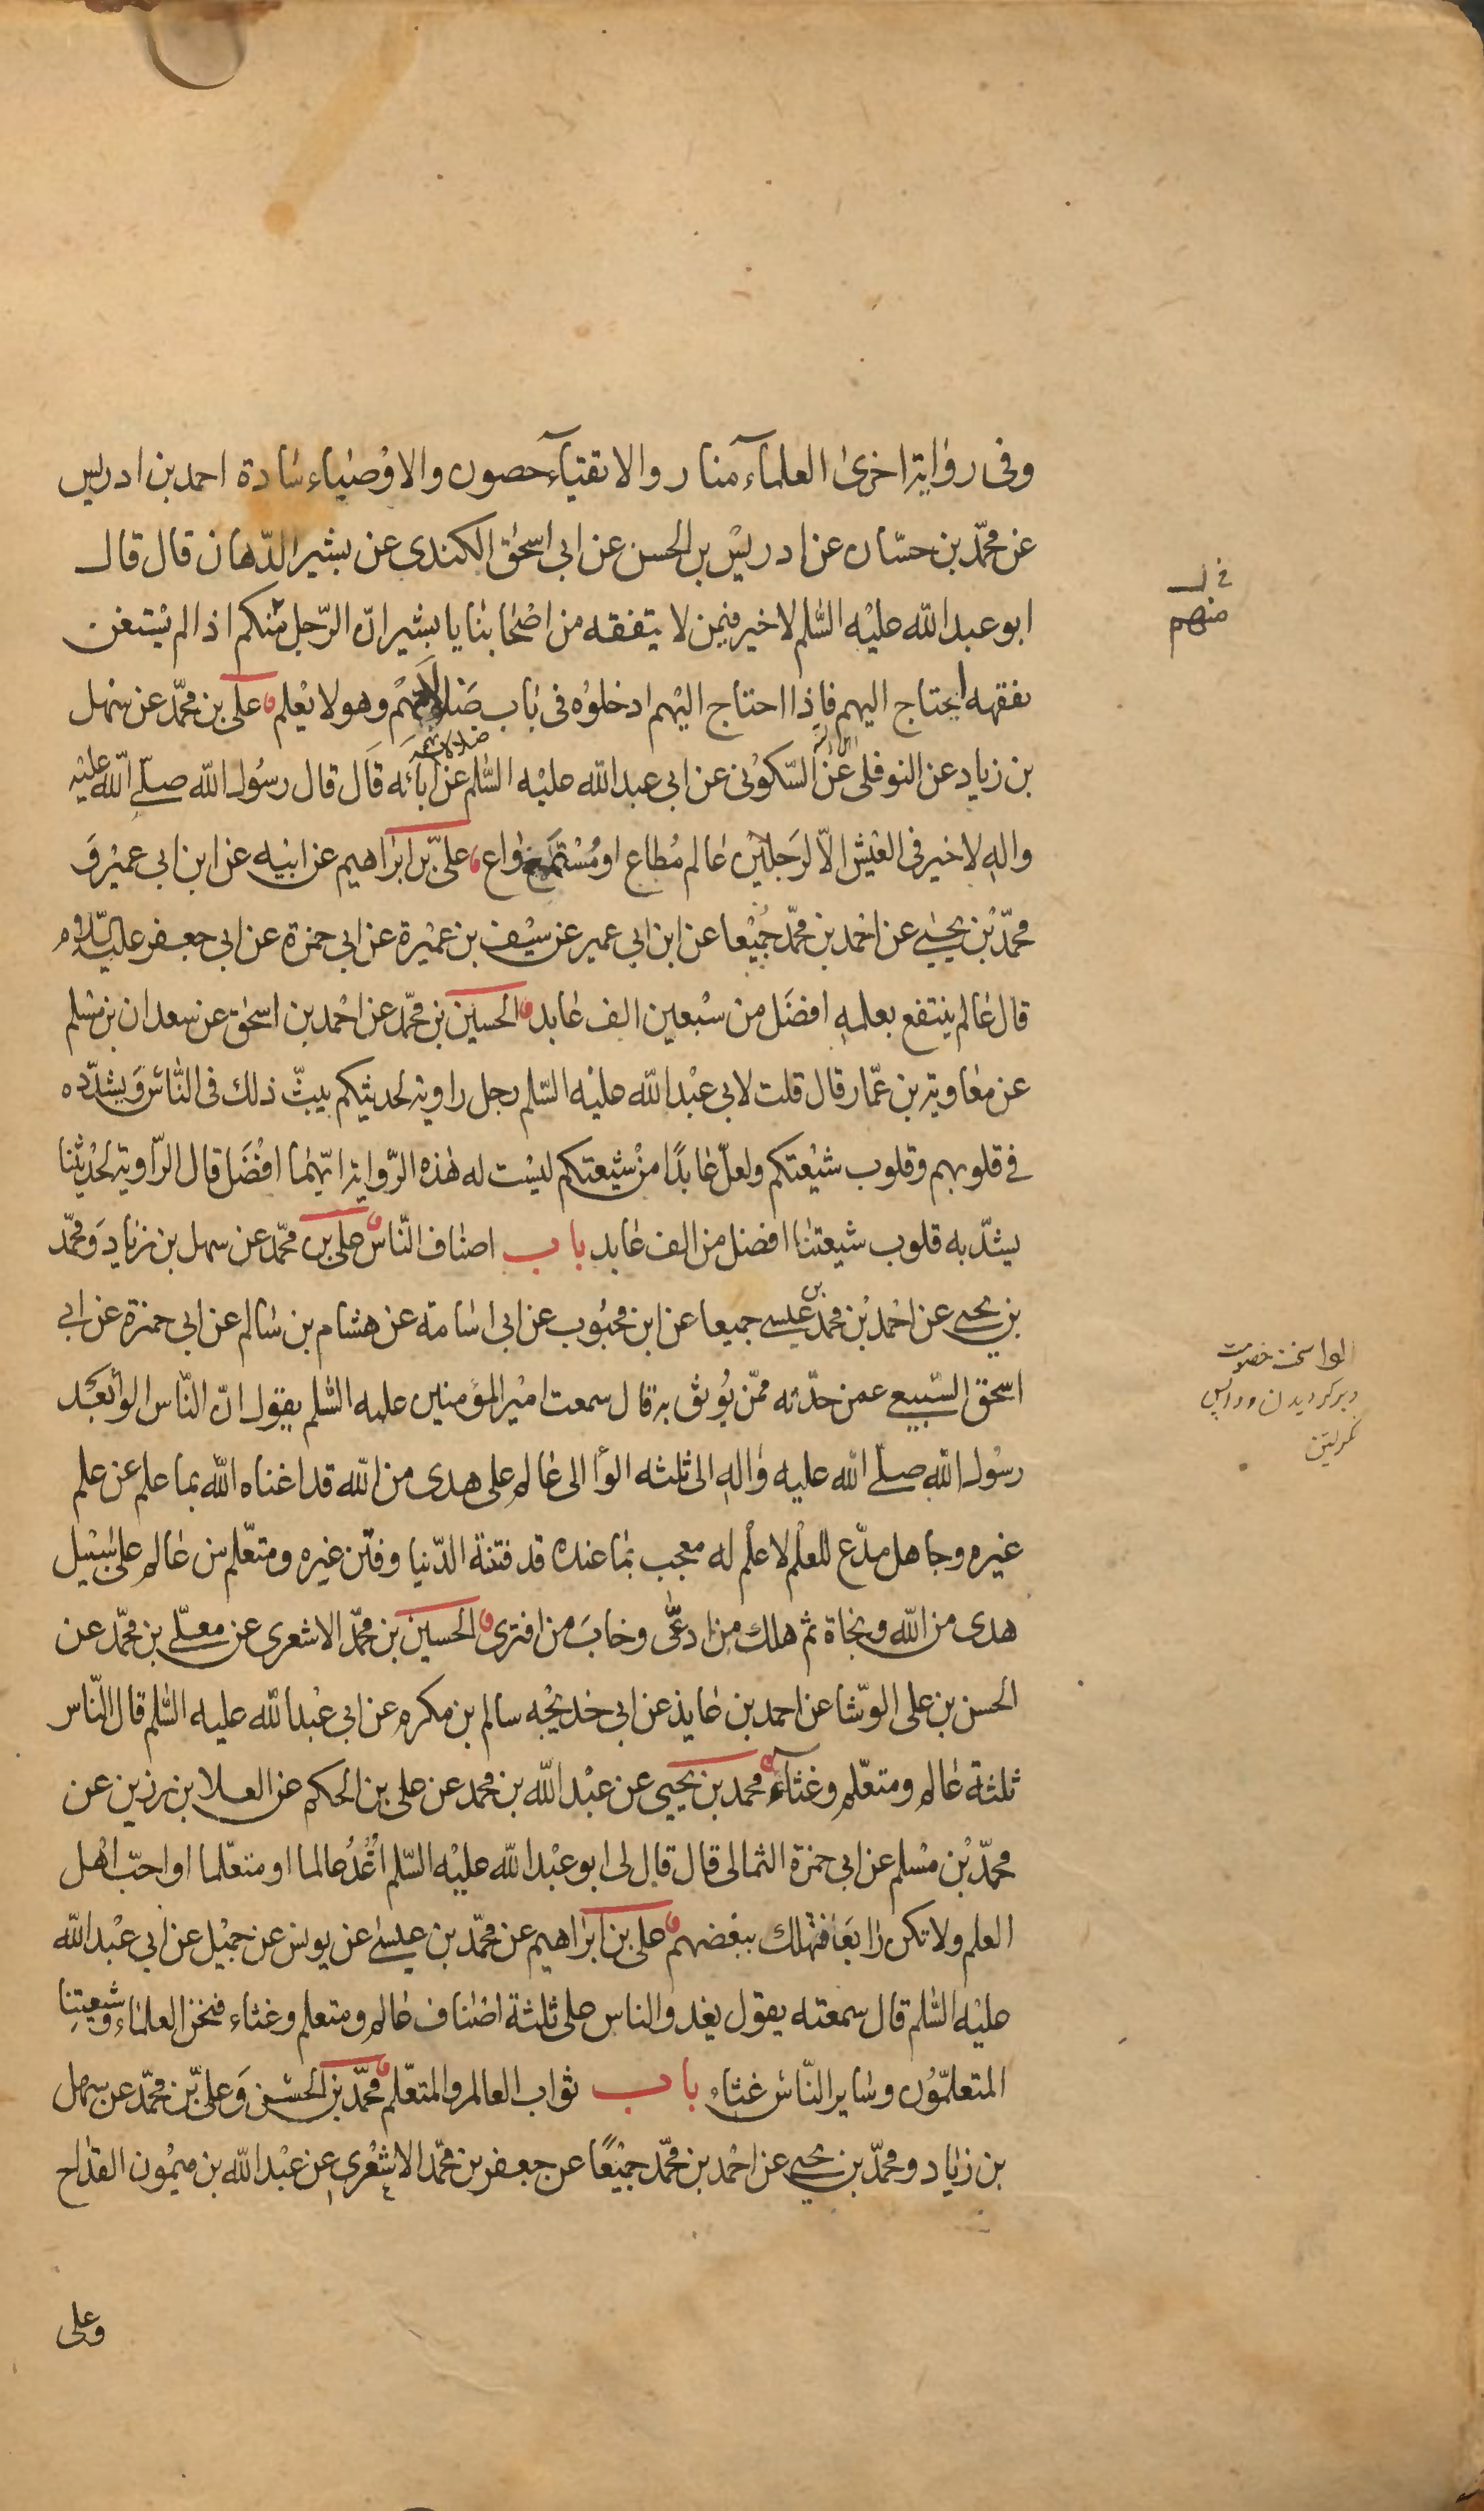 وفى رواية اخرى العلماء منار والاتقياء حصون والاوصياء سادة احمد بن ادريس
عن محمّد بن حسّان عن ادريس بن الحسن عن ابى اسحٰق الكندى عن بشير الدّهان قال قال
ابو عبد الله عليه السّلم لا خير فيمن لا يتفقه من اصحابنا يا بشير انّ الرّجل منكم اذا لم يستغن
بفقهه احتاج اليهم فاذا احتاج اليهم ادخلوه فى باب ضلالتهم وهو لا يعلم علىّ بن محمّد عن سهل
ضلالتهم
بن زياد عن النوفلى عن السّكونى عن ابى عبد الله عليه السّلم عن آبائه قال قال رسول الله صلّى الله عليه
واله لا خير فى العيش الّا لرجلين عالم مُطاع او مُستمع واع علىّ بن ابراهيم عن ابيه عن ابن ابى عمير وَ
محمّد بن يحيى عن احمد بن محمّد جميعا عن ابن ابى عمير عن سيف بن عميرة عن ابى حمزة عن ابى جعفر عليه السّلام
قال عالم ينتفع بعلمه افضل من سبعين الف عابد الحسين بن محمّد عن احمد بن اسحٰق عن سعدان بن مسلم
عن معاوية بن عمّار قال قلت لابى عبد الله عليه السّلم رجل راوية لحديثكم يبثّ ذلك فى النّاس ويشدّده
فى قلوبهم وقلوب شيعتكم ولعلّ عابدًا من شيعتكم ليست له هذه الرّواية ايّهما افضل قال الرّاوية لحديثنا
يشدّ به قلوب شيعتنا افضل من الف عابد باب اصناف النّاس على بن محمّد عن سهل بن زياد ومحمّد
بن يحيى عن احمد بن محمّد بن عيسى جميعا عن ابن محبوب عن ابى اسامة عن هشام بن سالم عن ابى حمزة عن ابى
اسحق السّبيعى عمن حدّثه ممّن يُوثق به قال سمعت امير المؤمنين عليه السّلم يقول انّ النّاس الوا بعد
رسول الله صلّى الله عليه واله الى ثلثه الوا الى عالم على هدى من الله قد اغناه الله بما علم عن علم
غيره وجاهل مدّع للعلم لا علم له معجب بما عنده قد فتنة الدّنيا وفتن غيره ومتعلّم من عالم على سبيل
هدى من الله ونجاة ثم هلك من ادعى وخاب من افترى الحسين بن محمّد الاشعرى عن معلّى بن محمّد عن
الحسن بن على الوشّا عن احمد بن عايذ عن ابى خديجه سالم بن مكرم عن ابى عبد الله عليه السّلم قال النّاس
ثلثة عالم ومتعلّم وغثاء محمد بن يحيى عن عبد الله بن محمد عن على بن الحكم عن العلا بن رزين عن
محمّد بن مسلم عن ابى حمزة الثمالى قال قال لى ابو عبد الله عليه السّلم اغدُ عالما او متعلّما او احبّ اهل
العلم ولا تكن رابعًا فتهلك ببغضهم على بن ابراهيم عن محمّد بن عيسى عن يونس عن جميل عن ابى عبد الله
عليه السّلم قال سمعته يقول يغدوا الناس على ثلثة اصناف عالم ومتعلم وغثاء فنحن العلماء وشيعتنا
المتعلّمون وساير النّاس غثاء باب ثواب العالم والمتعلّم محمّد بن الحسن وعلىّ بن محمّد عن سهل
بن زياد ومحمّد بن يحيى عن احمد بن محمّد جميعًا عن جعفر بن محمّد الاشعرى عن عبد الله بن ميمون القداح
وعلى
منهم